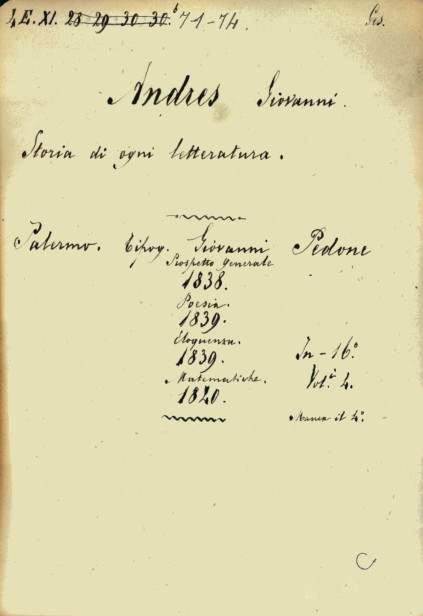 4 E. XI. 23 29 30 30.b 71-74. Ges.
Andres Giovanni.
Storia di ogni letteratura.
Palermo. Tipog. Giovanni Pedone
Prospetto generale
1838.
Poesia.
1839.
Eloquenza.
1839. In-16.°
Matematiche. Vol.i 4.
1840.
Manca il 4.°
C